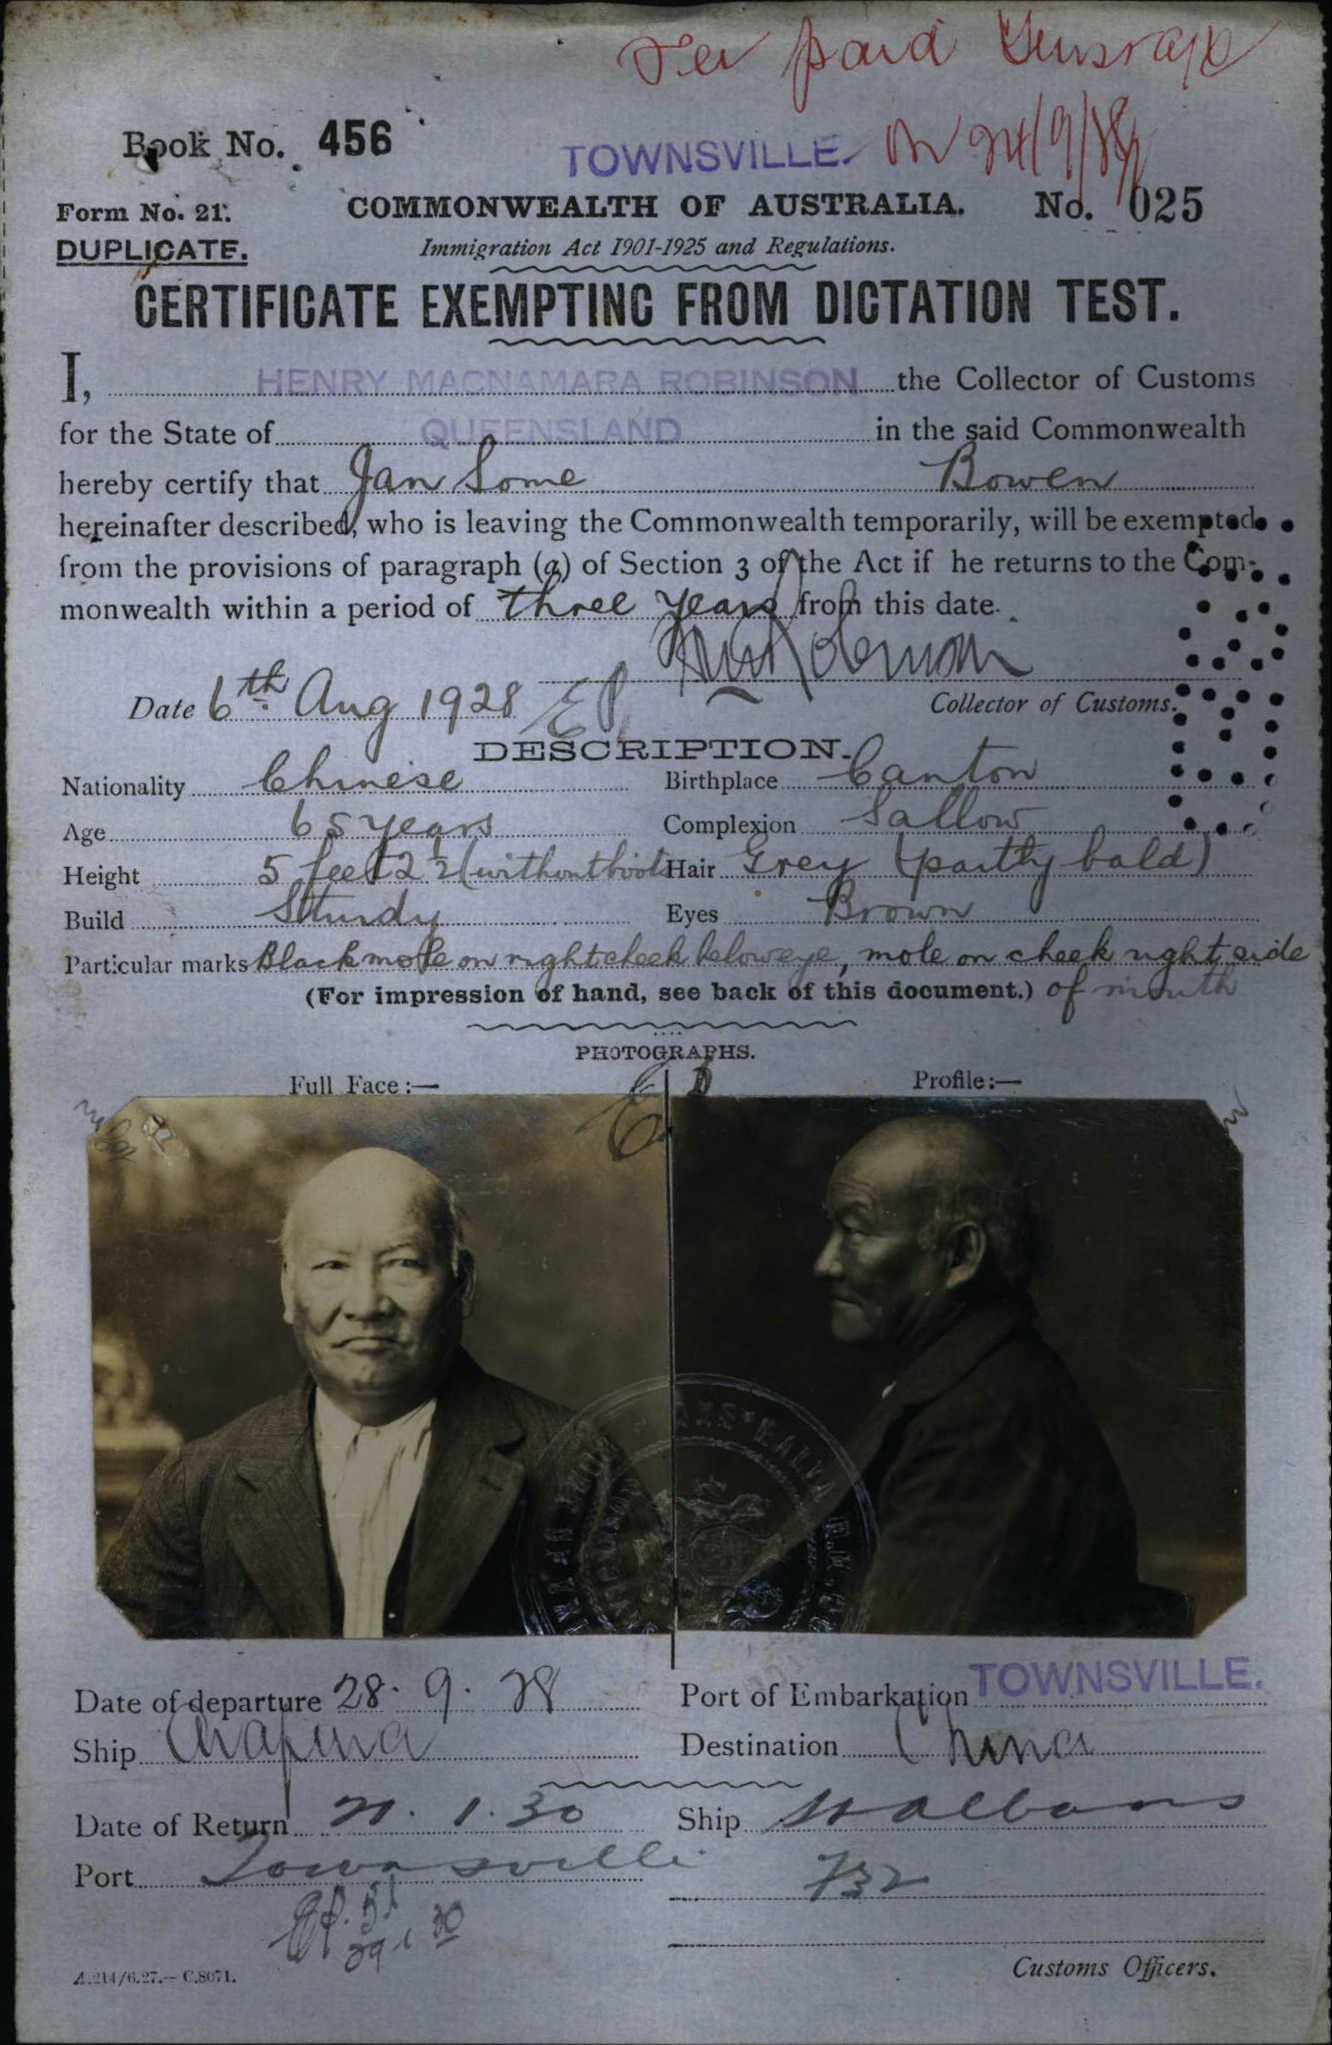 Fee paid
on 24/9/28
Book No. 456
TOWNSVILLE.
Form No. 21.
COMMONWEALTH OF AUSTRALIA. No. 025
DUPLICATE.
Immigration Act 1901-1925 and Regulations.
CERTIFICATE EXEMPTING FROM DICTATION TEST.
I, HENRY MACNAMARA ROBINSON the Collector of Customs
for the State of QUEENSLAND in the said Commonwealth
hereby certify that Jan Some Bowen
hereinafter described, who is leaving the Commonwealth temporarily, will be exempted
from the provisions of paragraph (a) of Section 3 of the Act if he returns to the Com-
monwealth within a period of three years from this date.
Date 6th Aug 1928
Collector of Customs.
DESCRIPTION.
Nationality Chinese Birthplace Canton
Age 65 years Complexion Sallow
Height 5 feet 2 1/2 (without boots Hair Grey (partly bald)
Build Sturdy Eyes Brown
Particular marks Black mole on right cheek below eye, mole on cheek right side
(For impression of hand, see back of this document.) of mouth
PHOTOGRAPHS.
Full Face:— Profile:—
Date of departure 28. 9. 28 Port of Embarkation TOWNSVILLE.
Ship Arafura Destination China
Date of Return 21. 1. 30 Ship St Albans
Port Townsville
Customs Officers.
A.214/6.27.— C.8071.